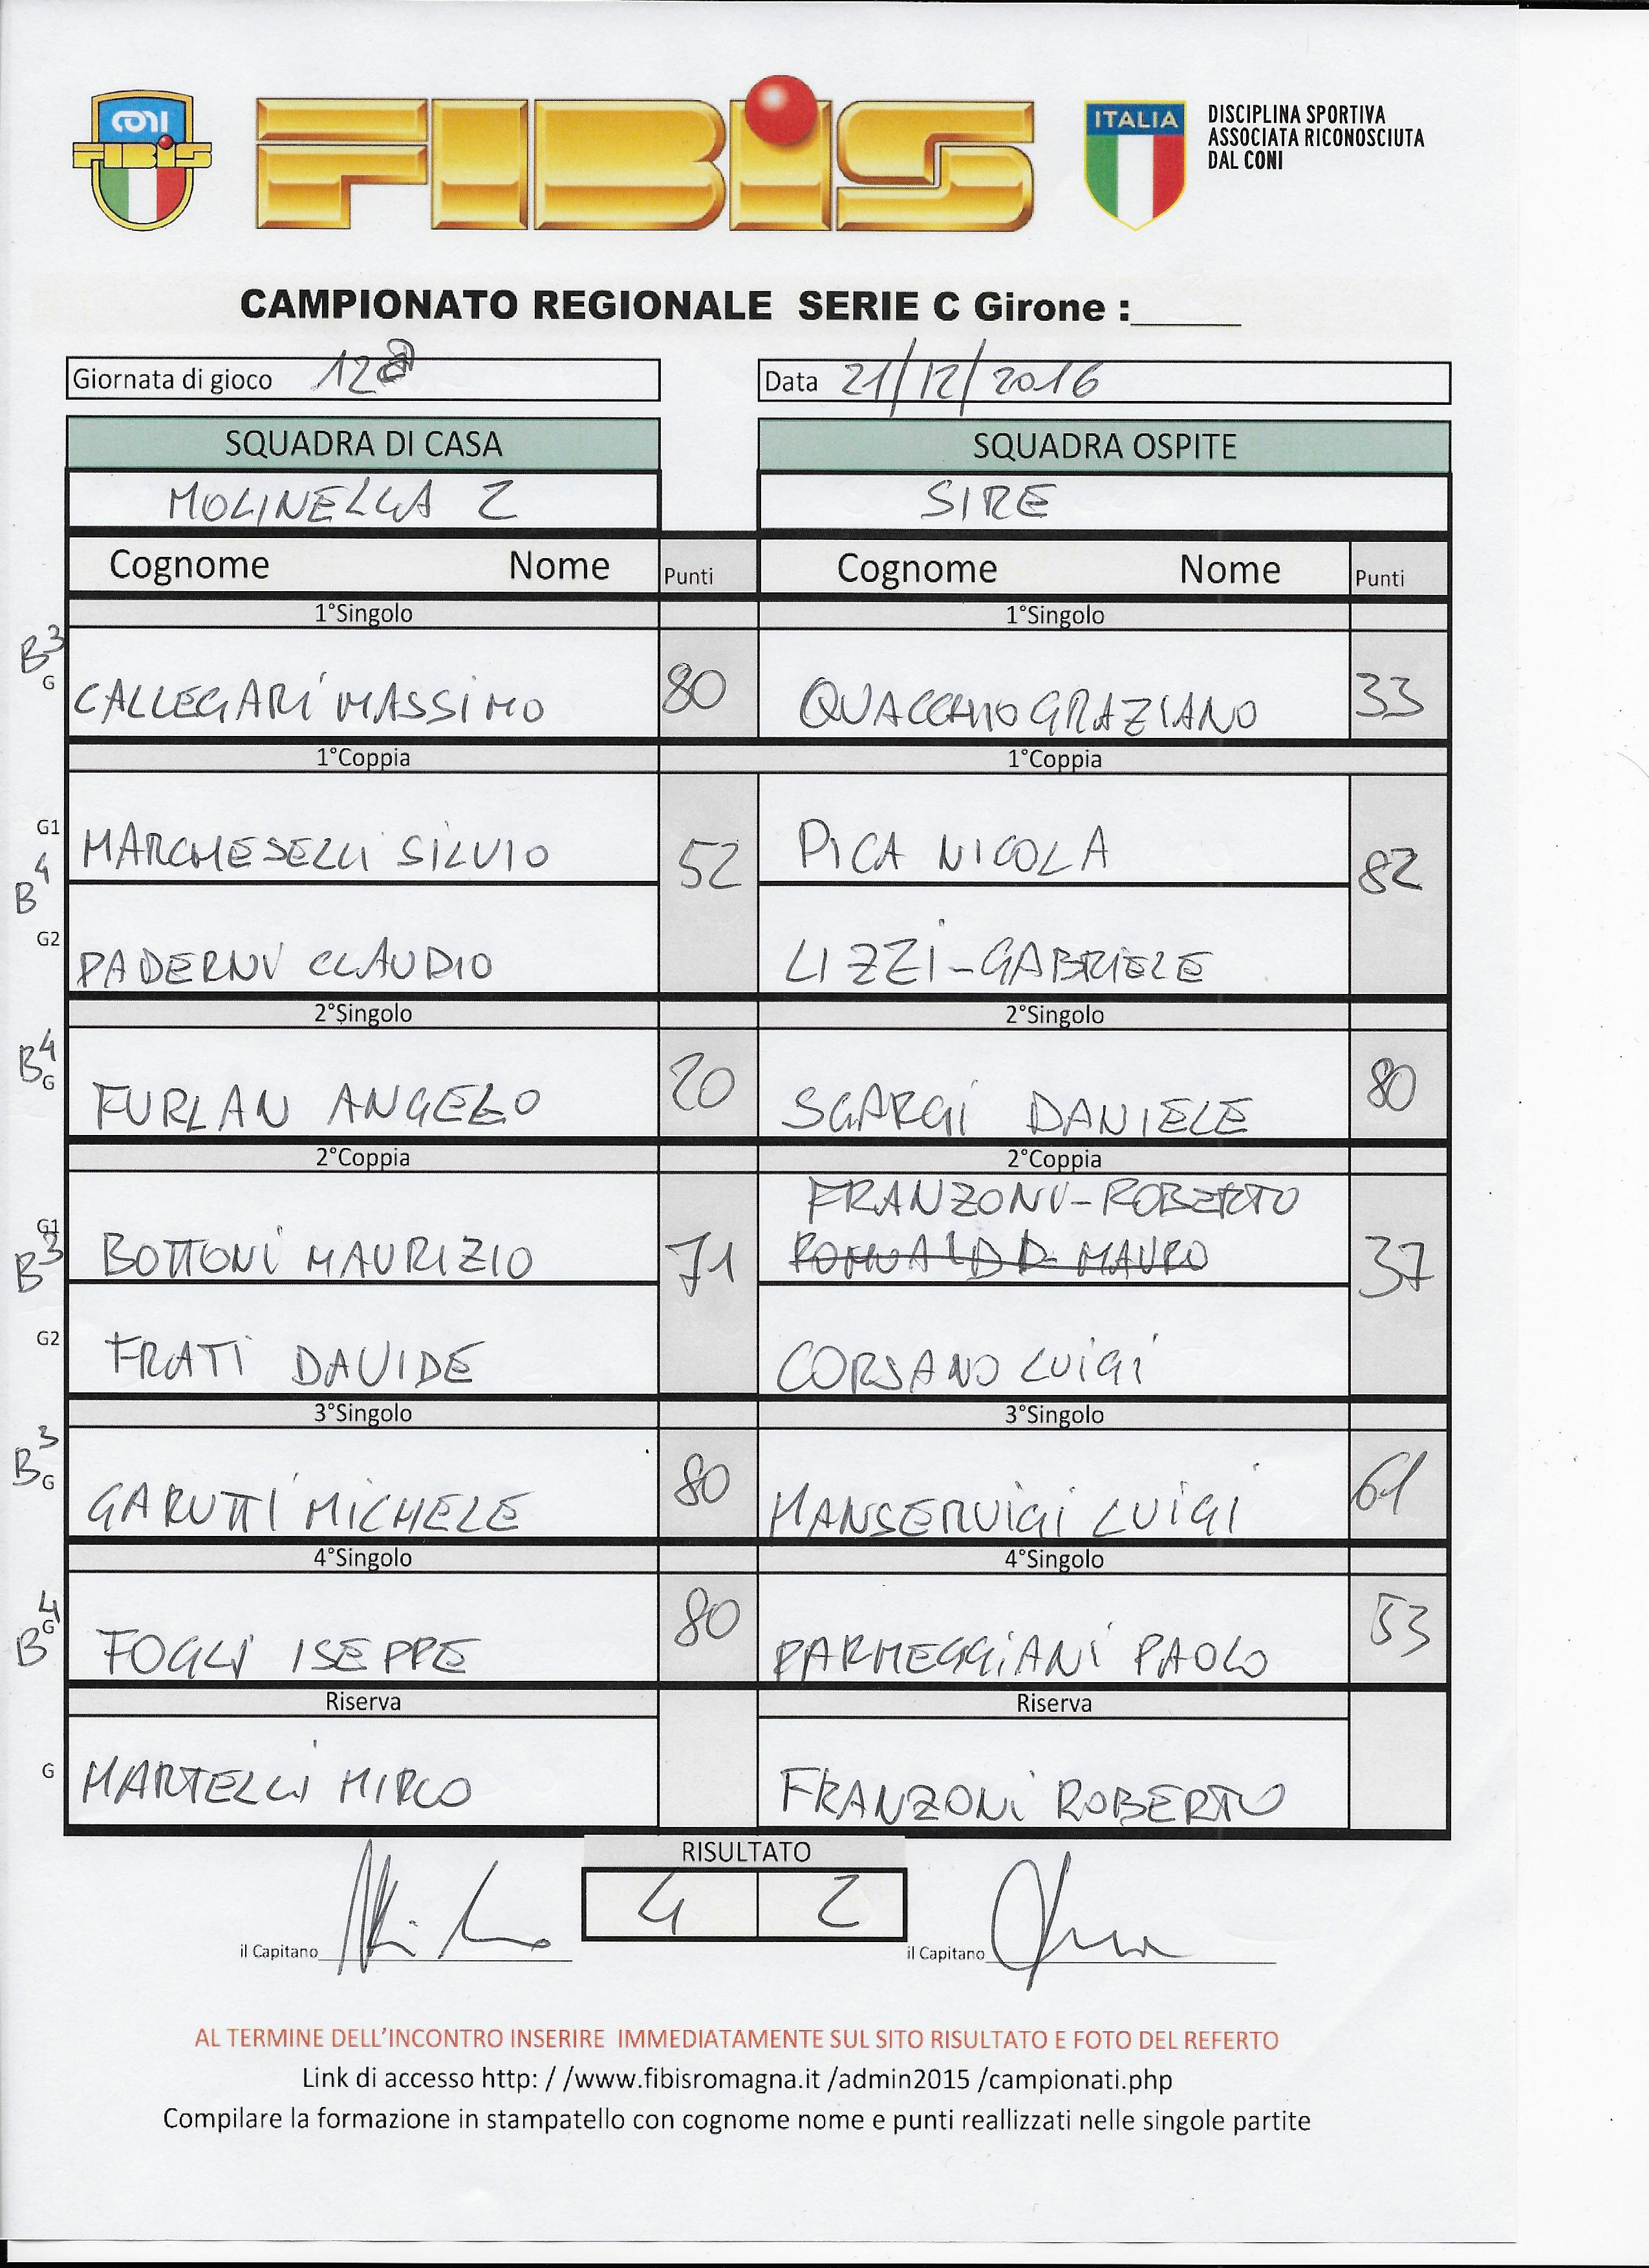 CONI
FIBiS
FIBiS
ITALIA
DISCIPLINA SPORTIVA
ASSOCIATA RICONOSCIUTA
DAL CONI
CAMPIONATO REGIONALE SERIE C Girone :______
Giornata di gioco 12a
Data 21/12/2016
SQUADRA DI CASA SQUADRA OSPITE
MOLINELLA 2 SIRE
Cognome Nome Punti Cognome Nome Punti
1°Singolo 1°Singolo
B3
G CALLEGARI MASSIMO 80 QUACCHIO GRAZIANO 33
1°Coppia 1°Coppia
G1 MARCHESELLI SILVIO 52 PICA NICOLA 82
B4
G2 PADERNI CLAUDIO LIZZI-GABRIELE
2°Singolo 2°Singolo
B4
G FURLAN ANGELO 20 SGARGI DANIELE 80
2°Coppia 2°Coppia
FRANZONI-ROBERTO
G1 BOTTONI MAURIZIO 71 MAURO 37
B3
G2 FRATI DAVIDE CORSANO LUIGI
3°Singolo 3°Singolo
B3
G GARUTTI MICHELE 80 MANSERVIGI LUIGI 61
4°Singolo 4°Singolo
B4
G FOGLI ISEPPE 80 PARMEGGIANI PAOLO 53
Riserva Riserva
G MARTELLI MIRCO FRANZONI ROBERTO
RISULTATO
4 2
il Capitano il Capitano
AL TERMINE DELL'INCONTRO INSERIRE IMMEDIATAMENTE SUL SITO RISULTATO E FOTO DEL REFERTO
Link di accesso http: / /www.fibisromagna.it /admin2015 /campionati.php
Compilare la formazione in stampatello con cognome nome e punti reallizzati nelle singole partite